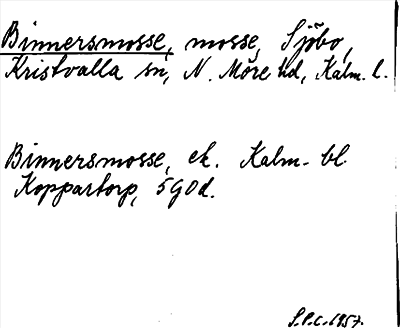 Binnersmosse, mosse, Sjöbo,
Kristvalla sn, N. Möre hd, Kalm. l.
Binnersmosse, ek. Kalm- bl
Koppartorp, 5 g 0 d.
S.P.C. 1957.